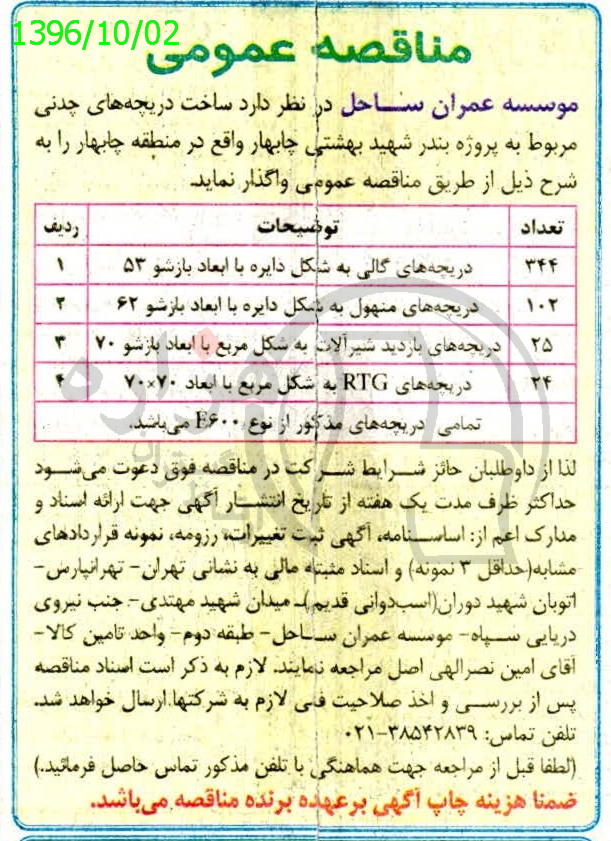 1396/10/02
مناقصه عمومی
موسسه عمران ساحل در نظر دارد ساخت دریچه‌های چدنی
مربوط به پروژه بندر شهید بهشتی چابهار واقع در منطقه چابهار را به
شرح ذیل از طریق مناقصه عمومی واگذار نماید.
ردیف توضیحات تعداد
۱ دریچه‌های گالی به شکل دایره با ابعاد بازشو ۵۳ ۳۴۴
۲ دریچه‌های منهول به شکل دایره با ابعاد بازشو ۶۲ ۱۰۲
۳ دریچه‌های بازدید شیرآلات به شکل مربع با ابعاد بازشو ۷۰ ۲۵
۴ دریچه‌های RTG به شکل مربع با ابعاد ۷۰×۷۰ ۲۴
تمامی دریچه‌های مذکور از نوع E۶۰۰ می‌باشد.
لذا از داوطلبان حائز شرایط شرکت در مناقصه فوق دعوت می‌شود
حداکثر ظرف مدت یک هفته از تاریخ انتشار آگهی جهت ارائه اسناد و
مدارک اعم از: اساسنامه، آگهی ثبت تغییرات، رزومه، نمونه قراردادهای
مشابه(حداقل ۳ نمونه) و اسناد مثبته مالی به نشانی تهران- تهرانپارس-
اتوبان شهید دوران(اسب‌دوانی قدیم)- میدان شهید مهتدی- جنب نیروی
دریایی سپاه- موسسه عمران ساحل- طبقه دوم- واحد تامین کالا-
آقای امین نصرالهی اصل مراجعه نمایند. لازم به ذکر است اسناد مناقصه
پس از بررسی و اخذ صلاحیت فنی لازم به شرکتها ارسال خواهد شد.
تلفن تماس: ۳۸۵۴۲۸۳۹-۰۲۱
(لطفا قبل از مراجعه جهت هماهنگی با تلفن مذکور تماس حاصل فرمائید.)
ضمنا هزینه چاپ آگهی بر عهده برنده مناقصه می‌باشد.